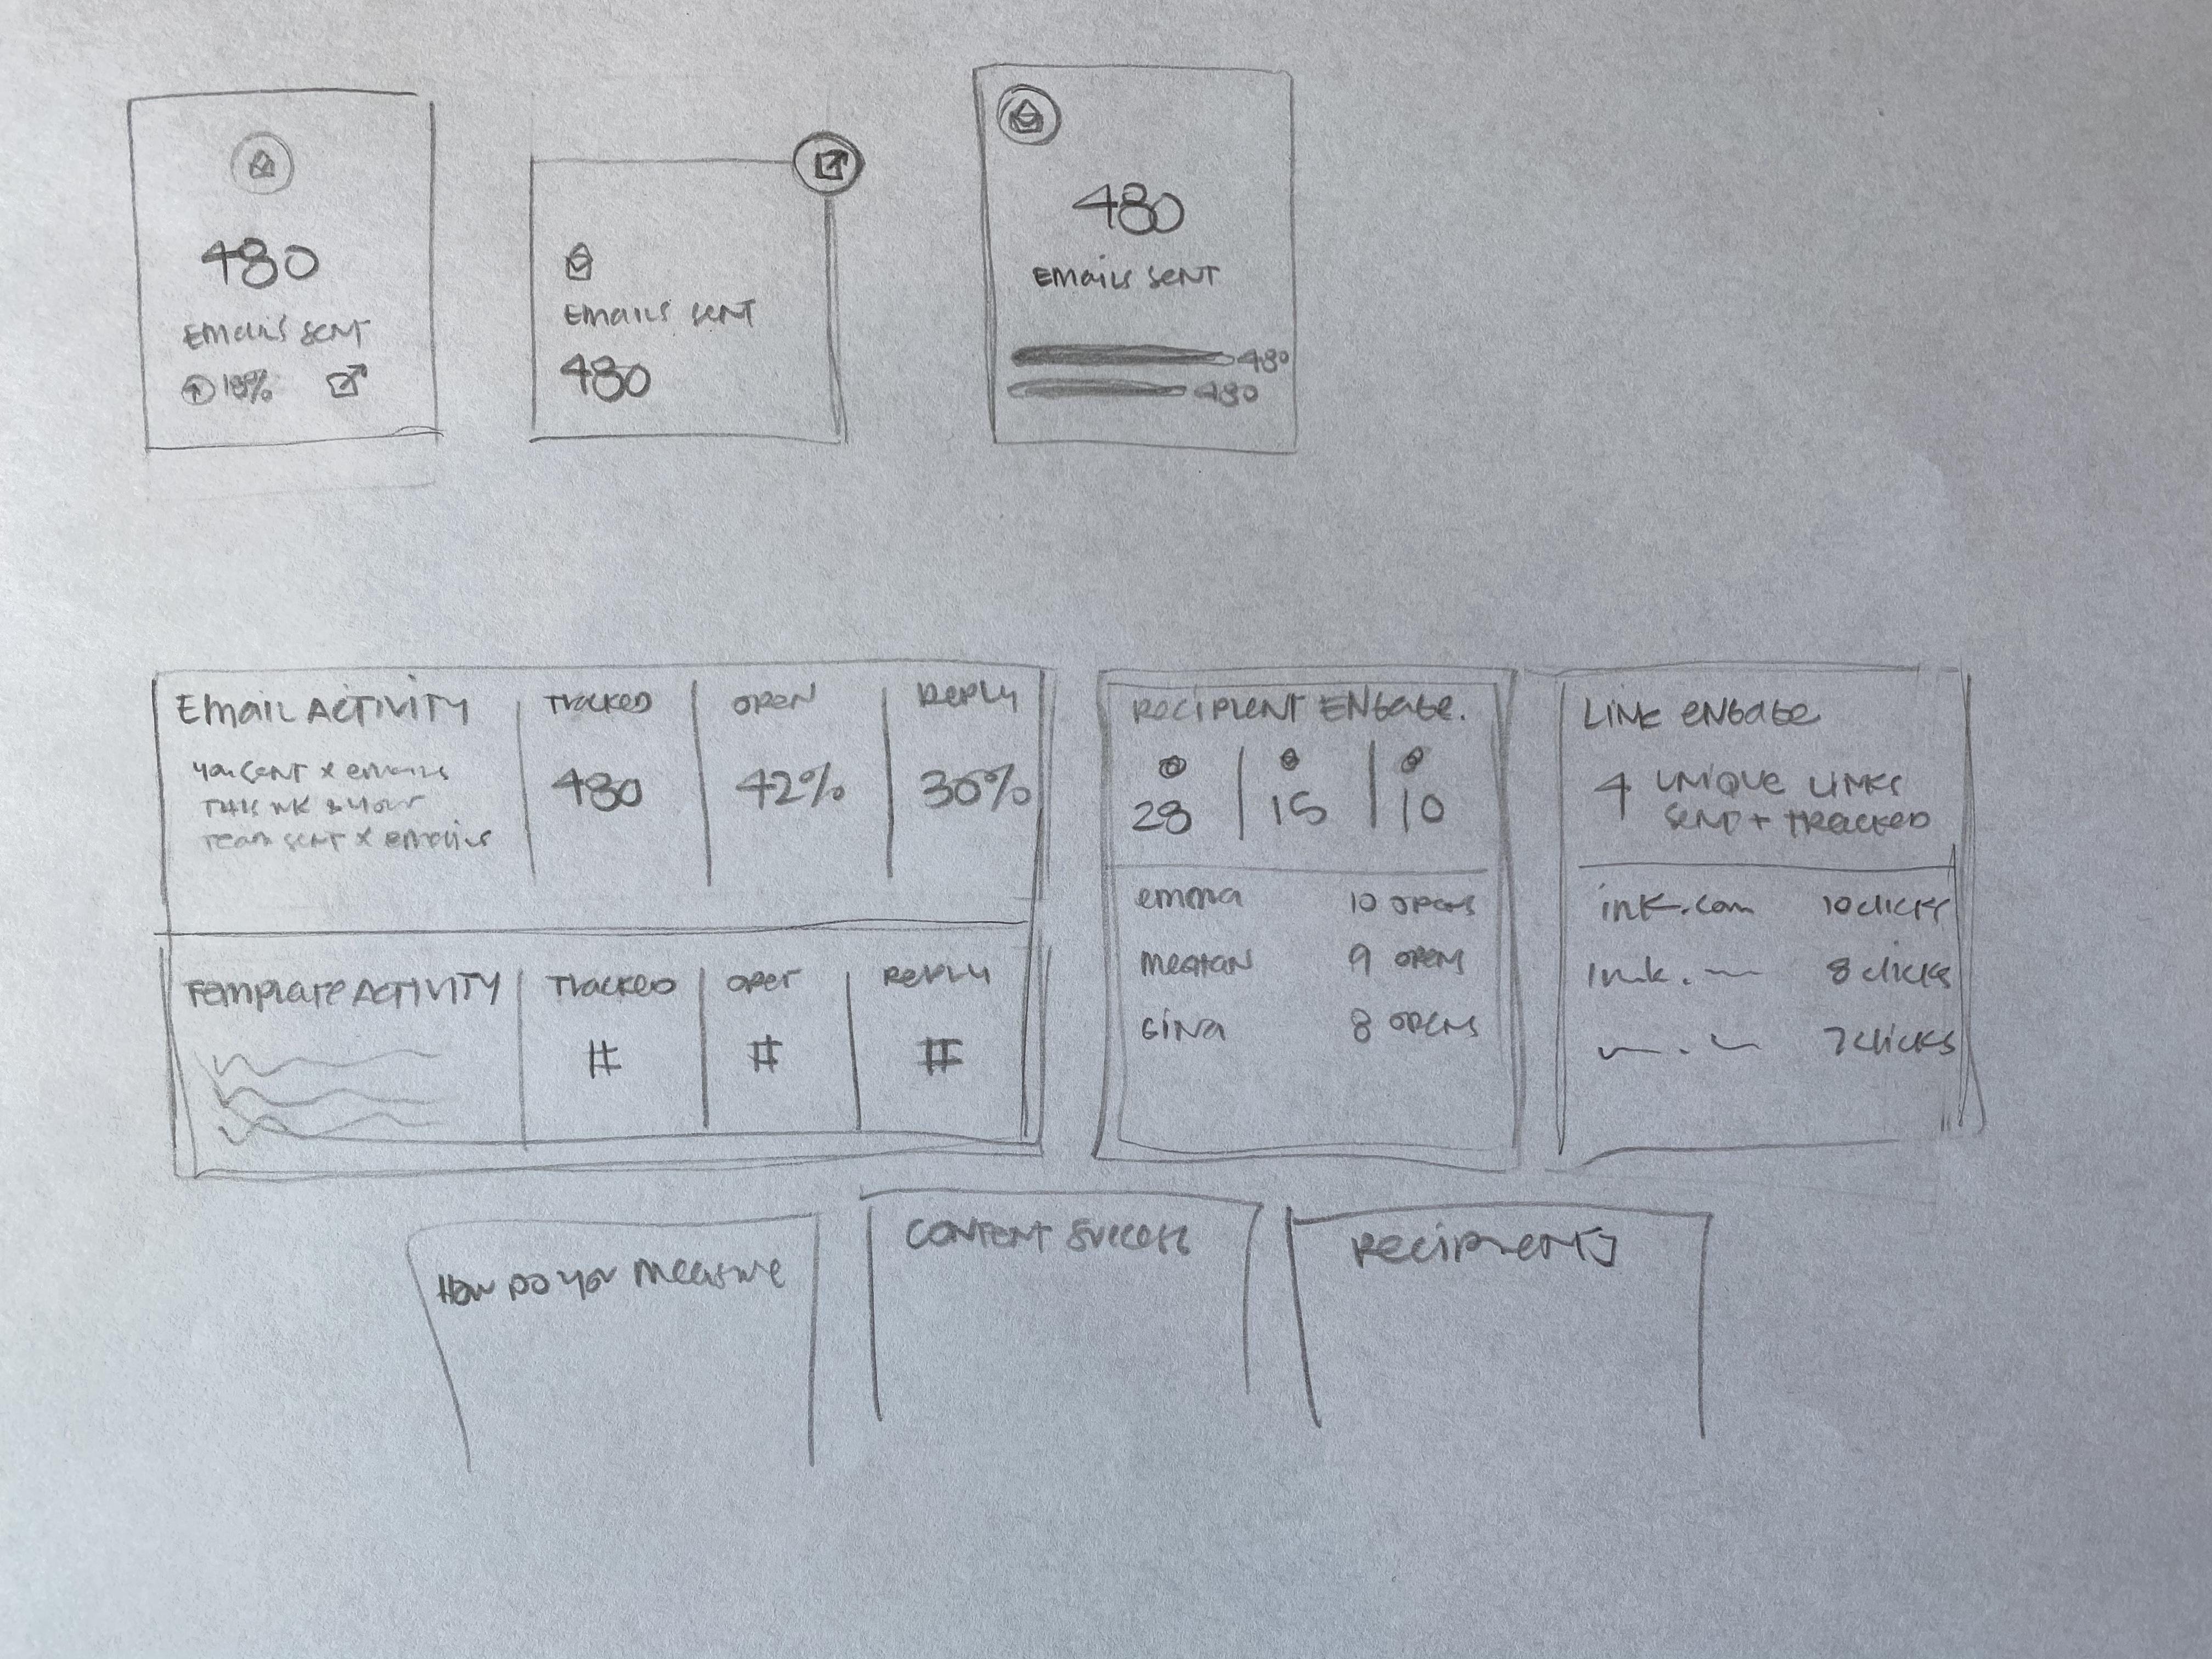 480
Emails sent
480
Emails sent
18%
Emails sent
480
480
480
Email Activity
you sent x emails
this wk & your
team sent x emails
Tracked
480
Open
42%
Reply
36%
Template Activity
Tracked
#
Open
#
Reply
#
Recipient Engage.
28
15
10
emma 10 opens
Meghan 9 opens
Gina 8 opens
Link engage
4 unique links
send + tracked
ink.com 10 clicks
8 clicks
7 clicks
How do you measure
Content success
Recipients